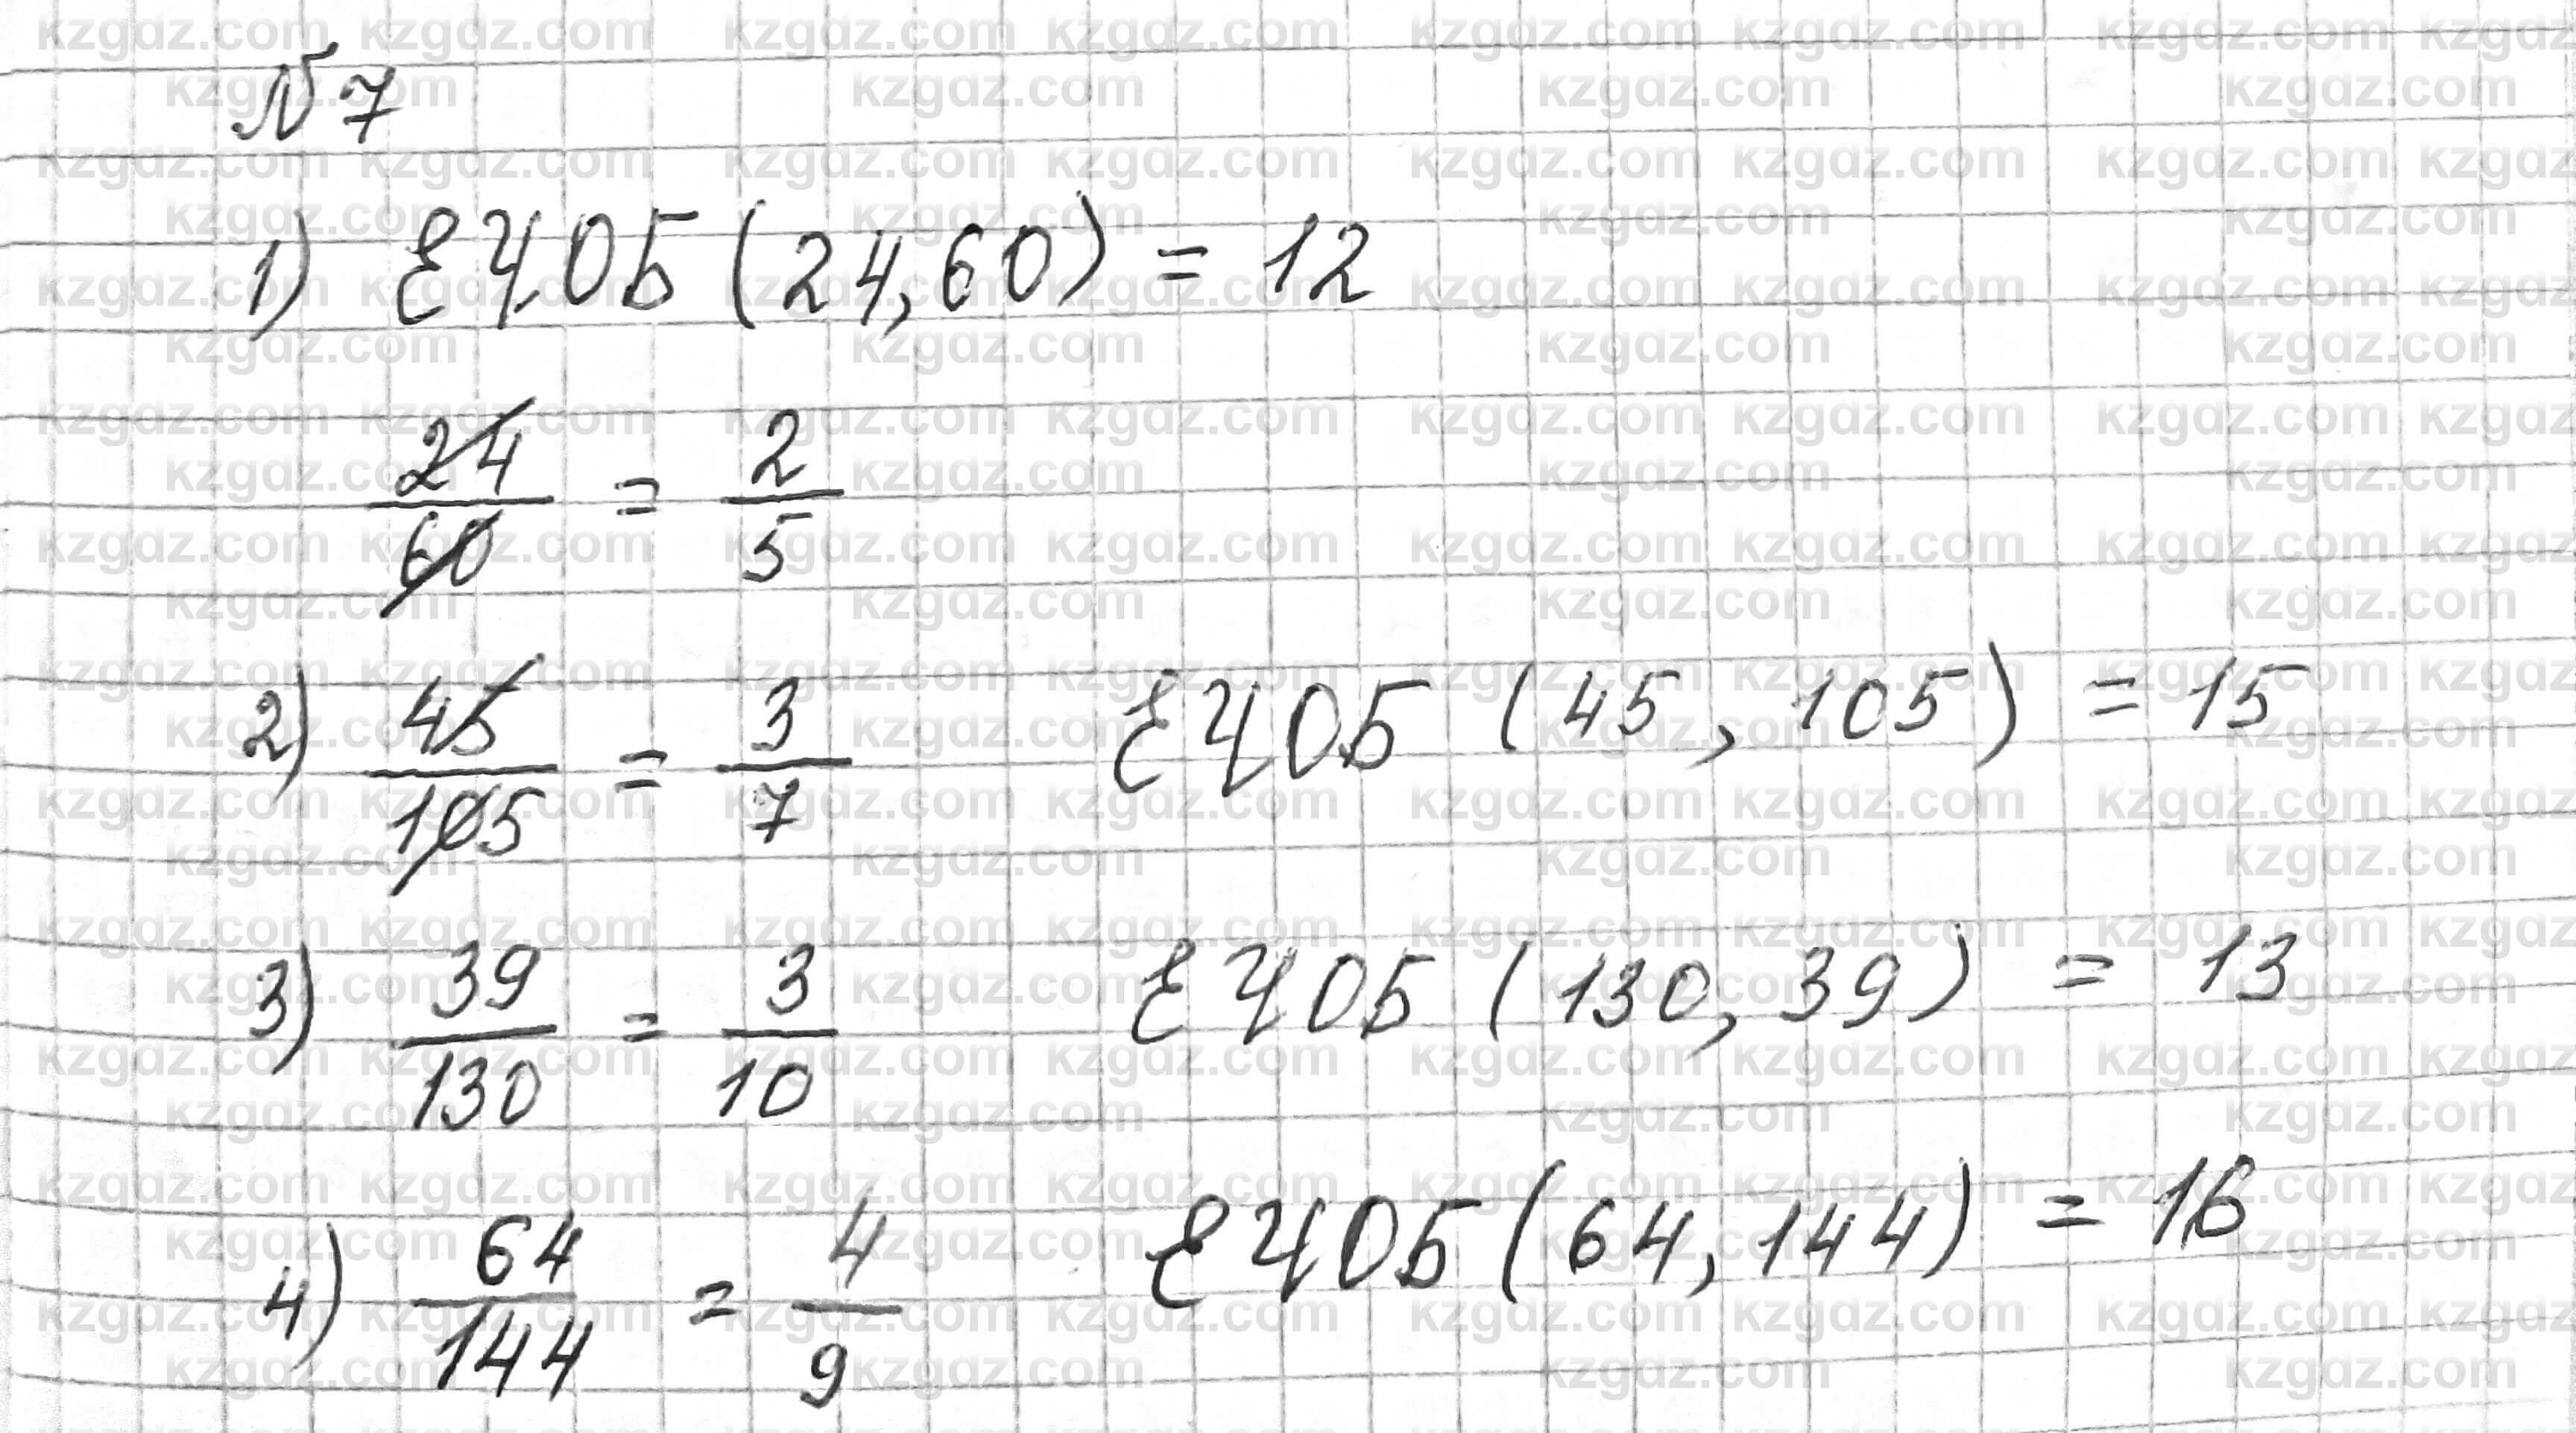 №7
1) ЕҮОБ (24,60) = 12
24/60 = 2/5
2) 45/105 = 3/7 ЕҮОБ (45, 105) = 15
3) 39/130 = 3/10 ЕҮОБ (130, 39) = 13
4) 64/144 = 4/9 ЕҮОБ (64, 144) = 16
kzgdz.com